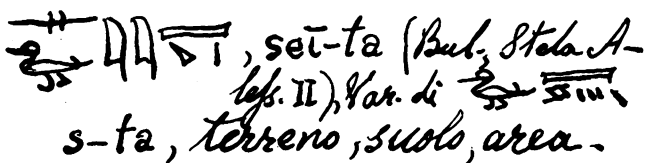 , seī-ta (Bul., Stela A-
less. II), Var. di
s-ta, terreno, suolo, area.